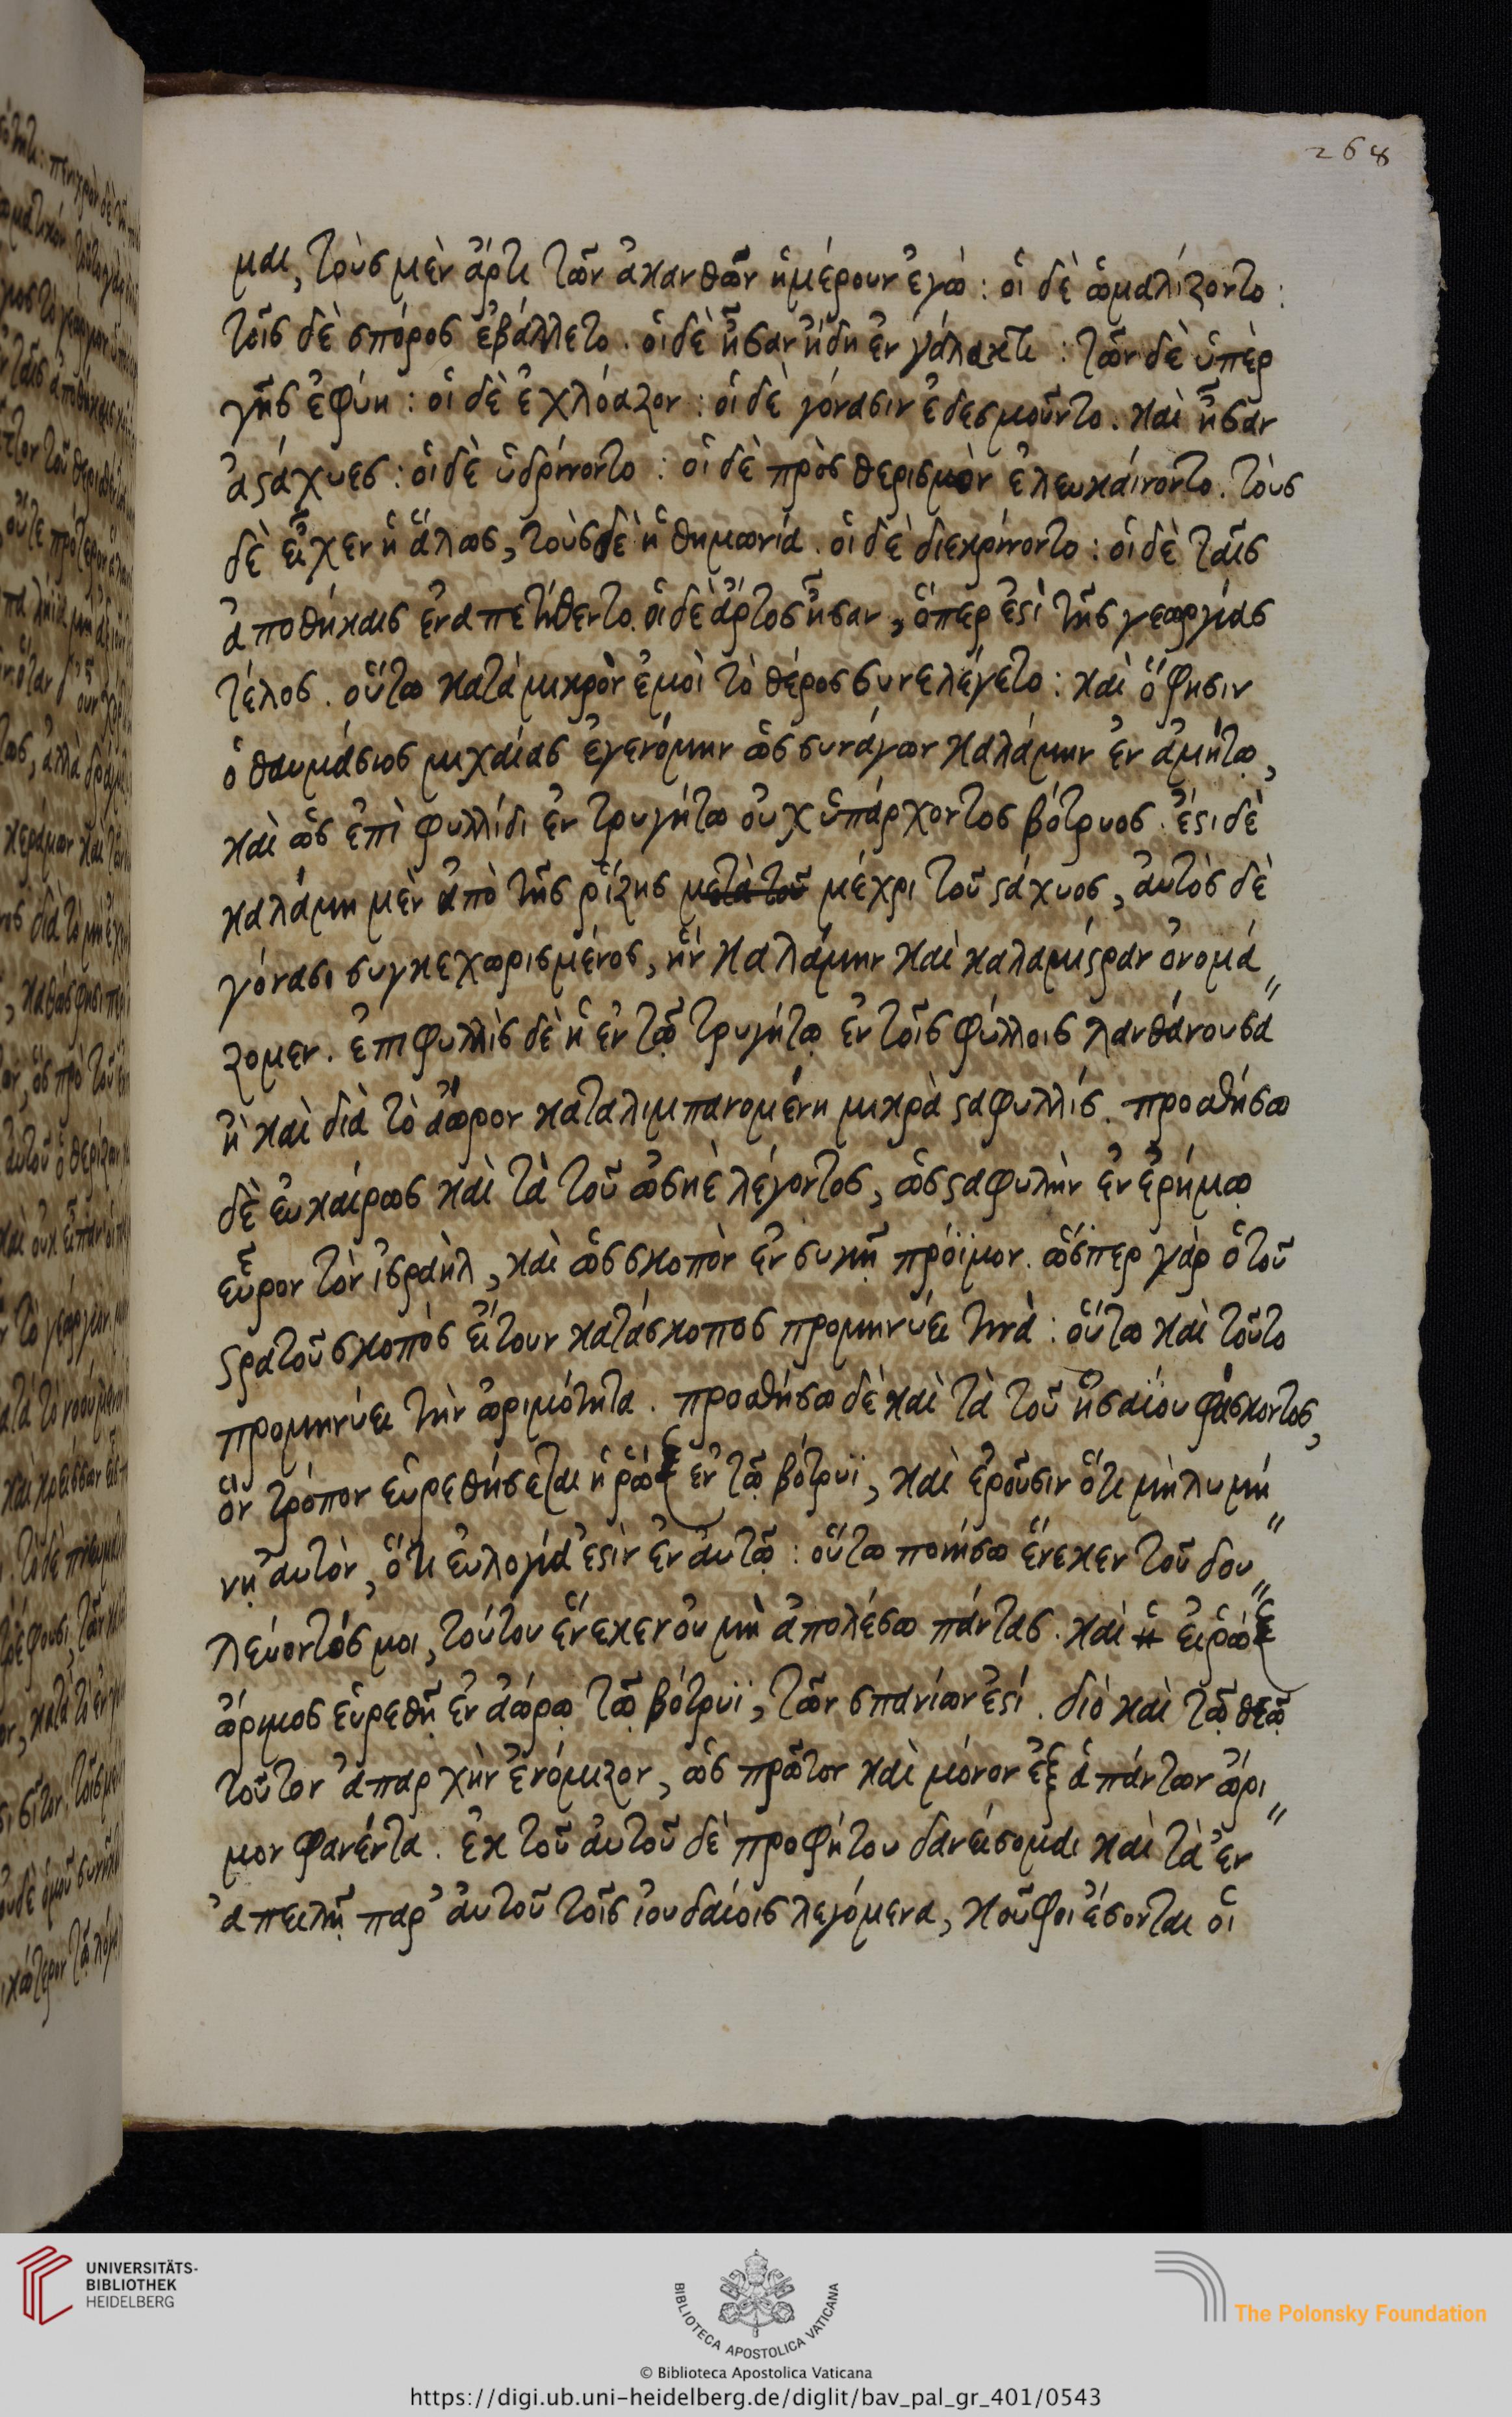 268
μαι, τοὺς μὲν ἄρτι τῶν ἀκανθῶν ἡμέρουν ἐγώ: οἱ δὲ ὡμαλίζοντο:
τοῖς δὲ σπόρος ἐβάλλετο. οἱ δὲ ἦσαν ἤδη ἐν γάλακτι: τῶν δὲ ὑπὲρ
γῆς ἐφύη: οἱ δὲ ἐχλόαζον: οἱ δὲ γόνασιν ἐδεσμοῦντο. καὶ ἦσαν
ἀϛάχυες: οἱ δὲ ὑδρίνοντο: οἱ δὲ πρὸς θερισμὸν ἐλευκαίνοντο. τοὺς
δὲ εἶχεν ἡ ἅλως, τοὺς δὲ ἡ θημωνία. οἱ δὲ διεκρίνοντο: οἱ δὲ ταῖς
ἀποθήκαις ἐναπετίθεντο. οἱ δὲ ἄρτος ἦσαν, ὅπερ ἐϛὶ τῆς γεωργίας
τέλος. οὕτω κατὰ μικρὸν ἐμοὶ τὸ θέρος συνελέγετο: καὶ ὅ φησιν
ὁ θαυμάσιος μιχαίας ἐγενόμην ὡς συνάγων καλάμην ἐν ἀμήτῳ,
καὶ ὡς ἐπὶ φυλλίδι ἐν τρυγήτω οὐχ ὑπάρχοντος βότρυος. ἔϛι δὲ
καλάμη μὲν ἀπὸ τῆς ῥίζης μετὰ τοῦ μέχρι τοῦ ϛάχυος, αὐτὸς δὲ
γόνασι συγκεχωρισμένος, ἣν καλάμην καὶ καλαμίϛραν ὀνομά〃
ζομεν. ἐπιφυλλὶς δὲ ἡ ἐν τῷ τρυγήτῳ ἐν τοῖς φύλλοις λανθάνουσα
ἢ καὶ διὰ τὸ ἄωρον καταλιμπανομένη μικρὰ ϛαφυλλίς. προσθήσω
δὲ εὐκαίρως καὶ τὰ τοῦ ὠσηὲ λέγοντος, ὡς ϛαφυλὴν ἐν ἐρήμω
εὗρον τὸν ἰσραὴλ, καὶ ὡς σκοπὸν ἐν συκῇ πρόϊμον. ὥσπερ γὰρ ὁ τοῦ
ϛρατοῦ σκοπὸς εἴτουν κατάσκοπος προμηνύει τινά: οὕτω καὶ τοῦτο
προμηνύει τὴν ὡριμότητα. προσθήσω δὲ καὶ τὰ τοῦ ἠσαΐου φάσκοντος,
ὃν τρόπον εὑρεθήσεται ἡ ῥὼξ ἐν τῷ βότρυϊ, καὶ ἐροῦσιν ὅτι μὴ λυμή〃
νῃ αὐτὸν, ὅτι εὐλογία ἐϛὶν ἐν αὐτῷ: οὕτω ποιήσω ἕνεκεν τοῦ δου〃
λεύοντός μοι, τούτου ἕνεκεν οὐ μὴ ἀπολέσω πάντας. καὶ ἡ εἰ ῥὼξ
ὥριμος εὑρεθῇ ἐν ἀώρῳ τῷ βότρυϊ, τῶν σπανίων ἐϛί. διὸ καὶ τῷ θεῷ
τοῦτον ἀπαρχὴν ἐνόμιζον, ὡς πρῶτον καὶ μόνον ἐξ ἁπάντων ὥρι〃
μον φανέντα. ἐκ τοῦ αὐτοῦ δὲ προφήτου δανείσομαι καὶ τὰ ἐν
ἀπειλῇ παρ' αὐτοῦ τοῖς ἰουδαίοις λεγόμενα, κοῦφοι ἔσονται οἱ
UNIVERSITÄTS-
BIBLIOTHEK
HEIDELBERG
BIBLIOTECA APOSTOLICA VATICANA
The Polonsky Foundation
© Biblioteca Apostolica Vaticana
https://digi.ub.uni-heidelberg.de/diglit/bav_pal_gr_401/0543